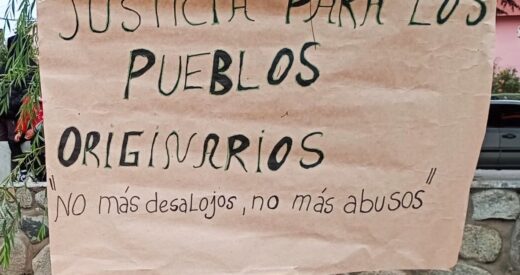 JUSTICIA PARA LOS
PUEBLOS
ORIGINARIOS
"NO más desaLojos, no más abusos"